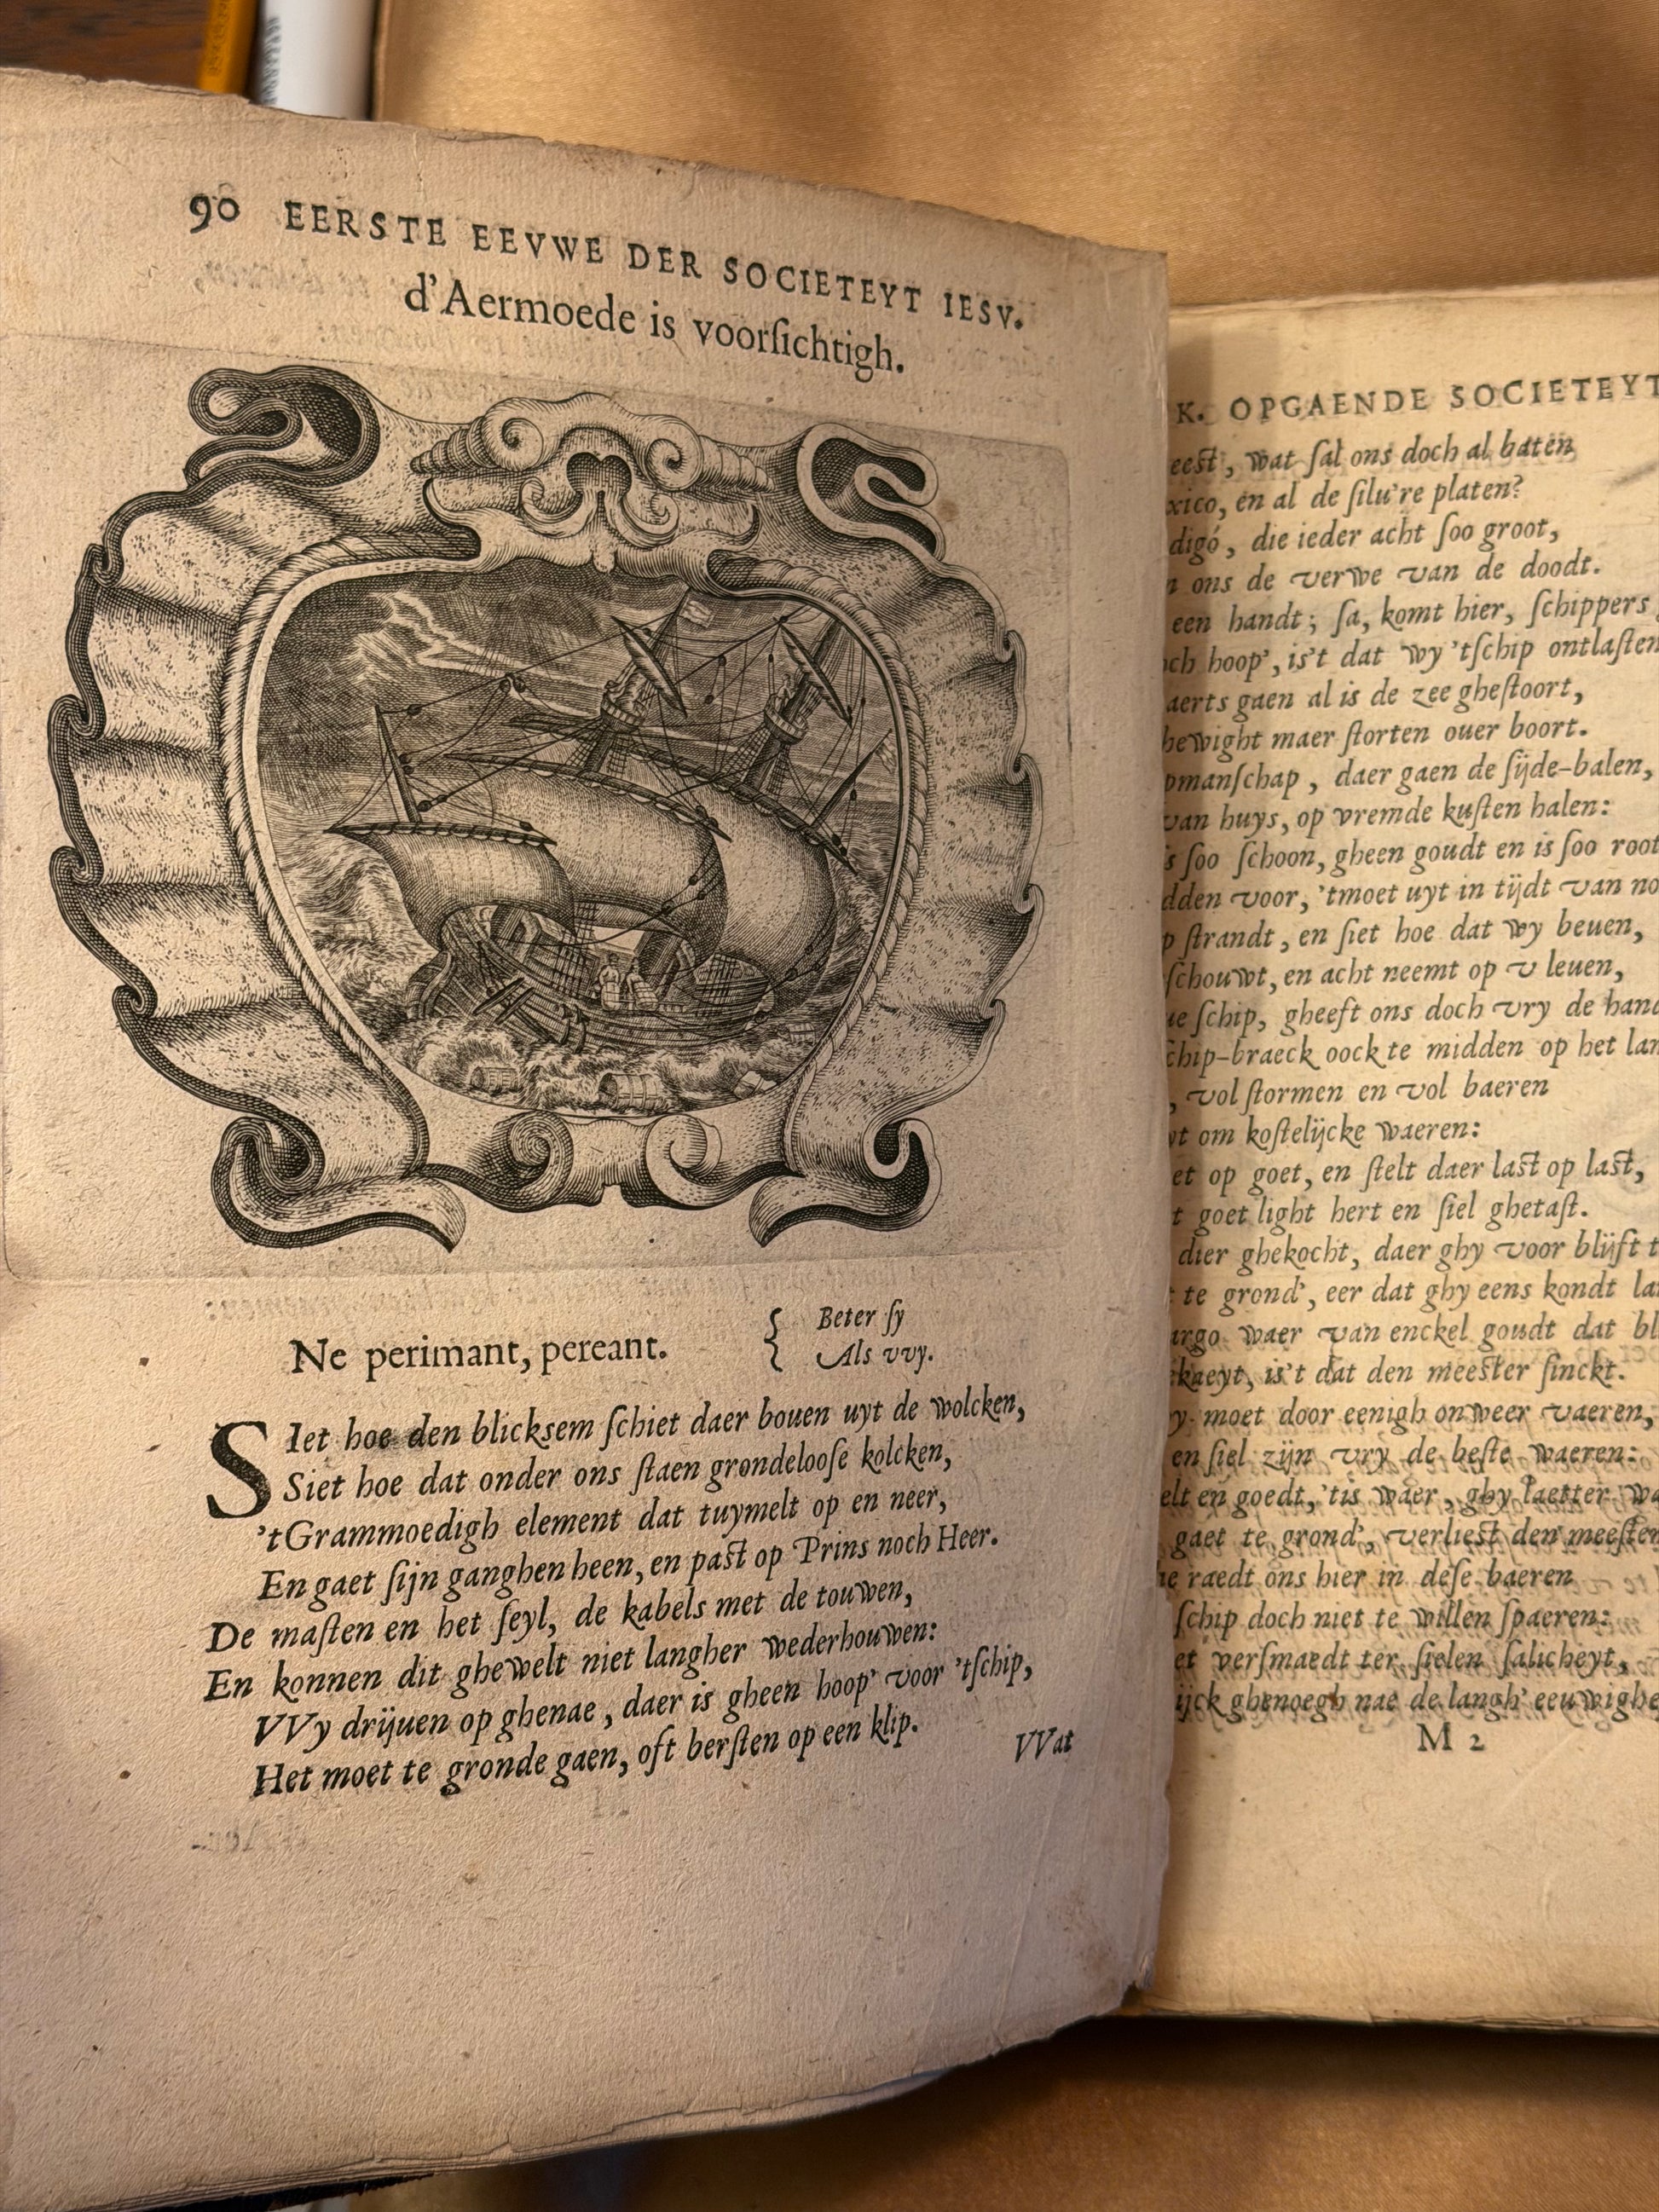 90 EERSTE EEVWE DER SOCIETEYT IESV.
d'Aermoede is voorſichtigh.
Ne perimant, pereant.
Beter ſy
Als vvy.
SIet hoe den blickſem ſchiet daer bouen uyt de wolcken,
Siet hoe dat onder ons ſtaen grondelooſe kolcken,
'tGrammoedigh element dat tuymelt op en neer,
En gaet ſijn ganghen heen, en past op Prins noch Heer.
De maſten en het ſeyl, de kabels met de touwen,
En konnen dit ghewelt niet langher wederhouwen:
VVy drijuen op ghenae, daer is gheen hoop' voor 'tſchip,
Het moet te gronde gaen, oft berſten op een klip.
VVat
K. OPGAENDE SOCIETEYT
wat ſal ons doch al baten
en al de ſilu're platen?
die ieder acht ſoo groot,
ons de verwe van de doodt.
een handt; ſa, komt hier, ſchippers
hoop', is't dat wy 'tſchip ontlaſten
gaen al is de zee gheſtoort,
maer ſtorten ouer boort.
daer gaen de ſijde-balen,
van huys, op vremde kuſten halen:
ſoo ſchoon, gheen goudt en is ſoo root
voor, 'tmoet uyt in tijdt van
ſtrandt, en ſiet hoe dat wy beuen,
en acht neemt op u leuen,
ſchip, gheeft ons doch vry de
oock te midden op het
vol ſtormen en vol baeren
om koſtelijcke waeren:
op goet, en ſtelt daer last op last,
goet light hert en ſiel ghetaſt.
dier ghekocht, daer ghy voor blijft
te grond', eer dat ghy eens kondt
waer van enckel goudt dat
is't dat den meester ſinckt.
moet door eenigh onweer vaeren,
en ſiel zijn vry de beſte waeren:
en goedt, 'tis waer, ghy laetter
gaet te grond', verliest den meeſter
raedt ons hier in deſe baeren
ſchip doch niet te willen ſpaeren:
verſmaedt ter ſielen ſalicheyt,
ghenoegh nae de langh'
M 2